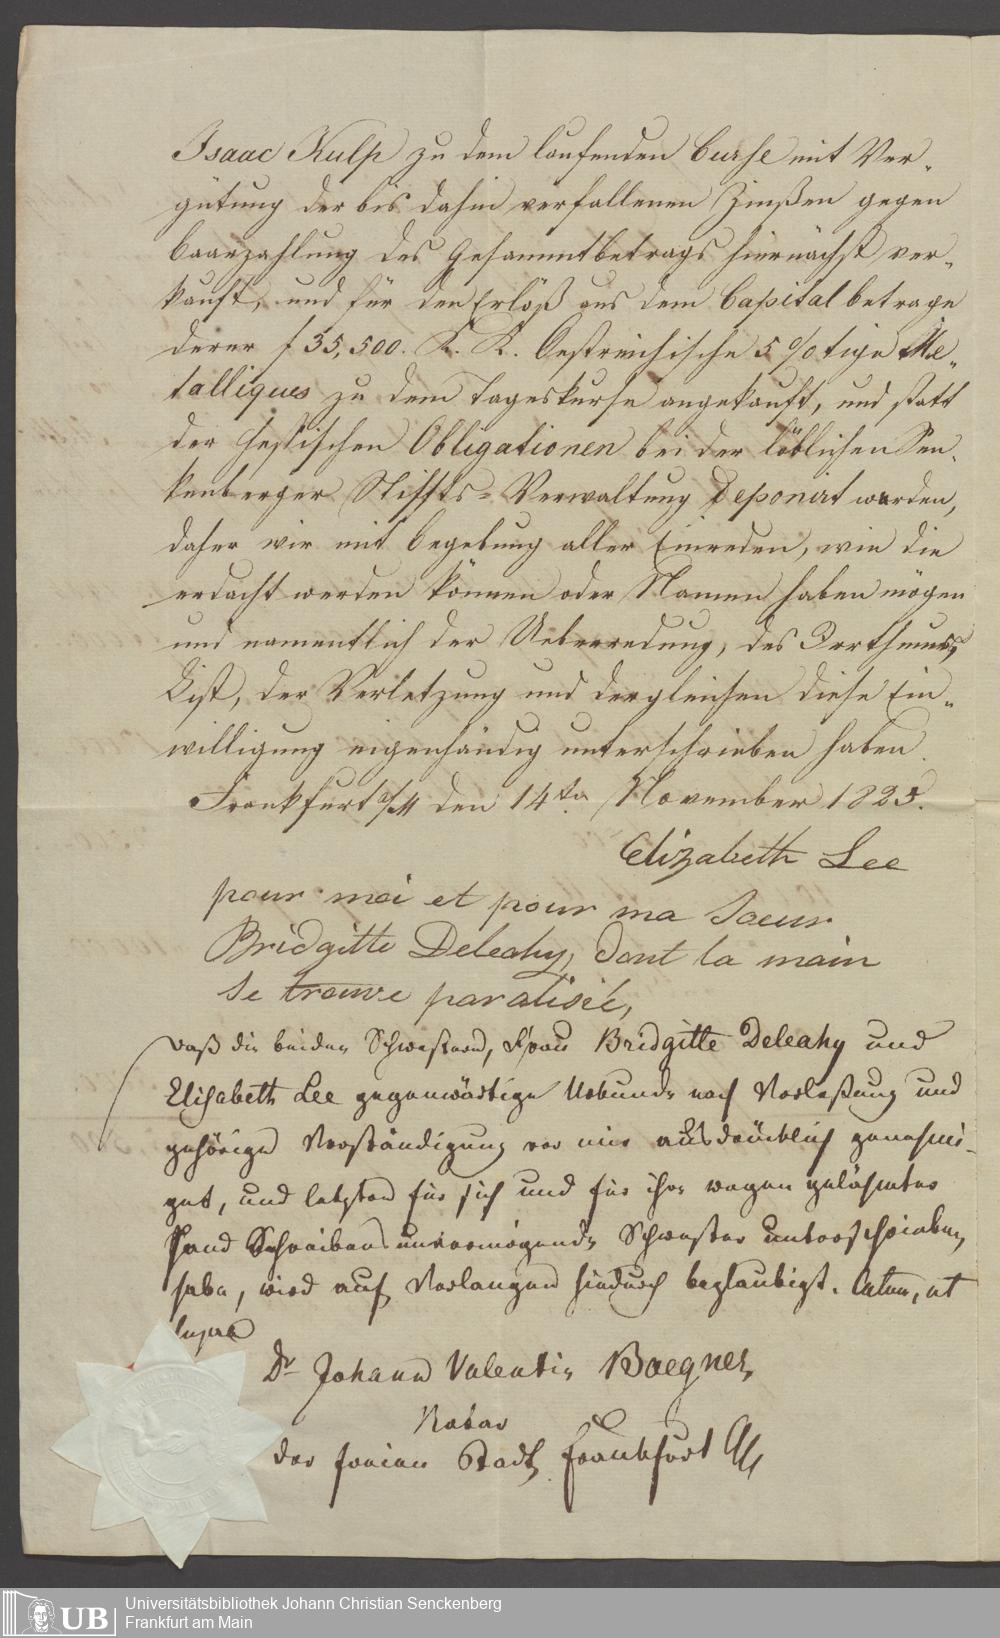 Isaac Kulp zu dem laufenden Curse mit Ver-
gütung der bis dahin verfallenen Zinßen gegen
baarzahlung des Gesammtbetrags hiernächst ver-
kauft, und für den Erlöß aus dem Capital betrage
derer f 35,500. K. K. Oestreichische 5 % tige Me-
talliques zu dem Tageskurse angekauft, und statt
der Hessischen Obligationen bei der löblichen Sen-
kenberger Stiffts-Verwaltung Deponirt werden,
daher wir mit begebung aller Einreden, wie die
erdacht werden können oder Namen haben mögen
und namentlich der Ueberredung, des Irrthums,
List, der Verletzung und dergleichen diese Ein-
willigung eigenhändig unterschrieben haben.
Frankfurt a/M den 14ten November 1825.
Elizabeth Lee
pour moi et pour ma Soeur
Bridgitte Deleahy, dont la main
se trouve paralisée,
Daß die beiden Schwestern, Frau Bridgitte Deleahy und
Elisabeth Lee gegenwärtige Urkunde nach Vorleßung und
gehörige Verständigung vor mir ausdrücklich genehmi-
get, und letztere für sich und für ihre wegen gelähmter
Hand Schreibens unvermögende Schwester unterschrieben
habe, wird auf Verlangen hiedurch beglaubigt. Datum, ut
supra
Dr Johann Valentin Boegner
Notar
der freien Stadt Frankfurt
UB
Universitätsbibliothek Johann Christian Senckenberg
Frankfurt am Main